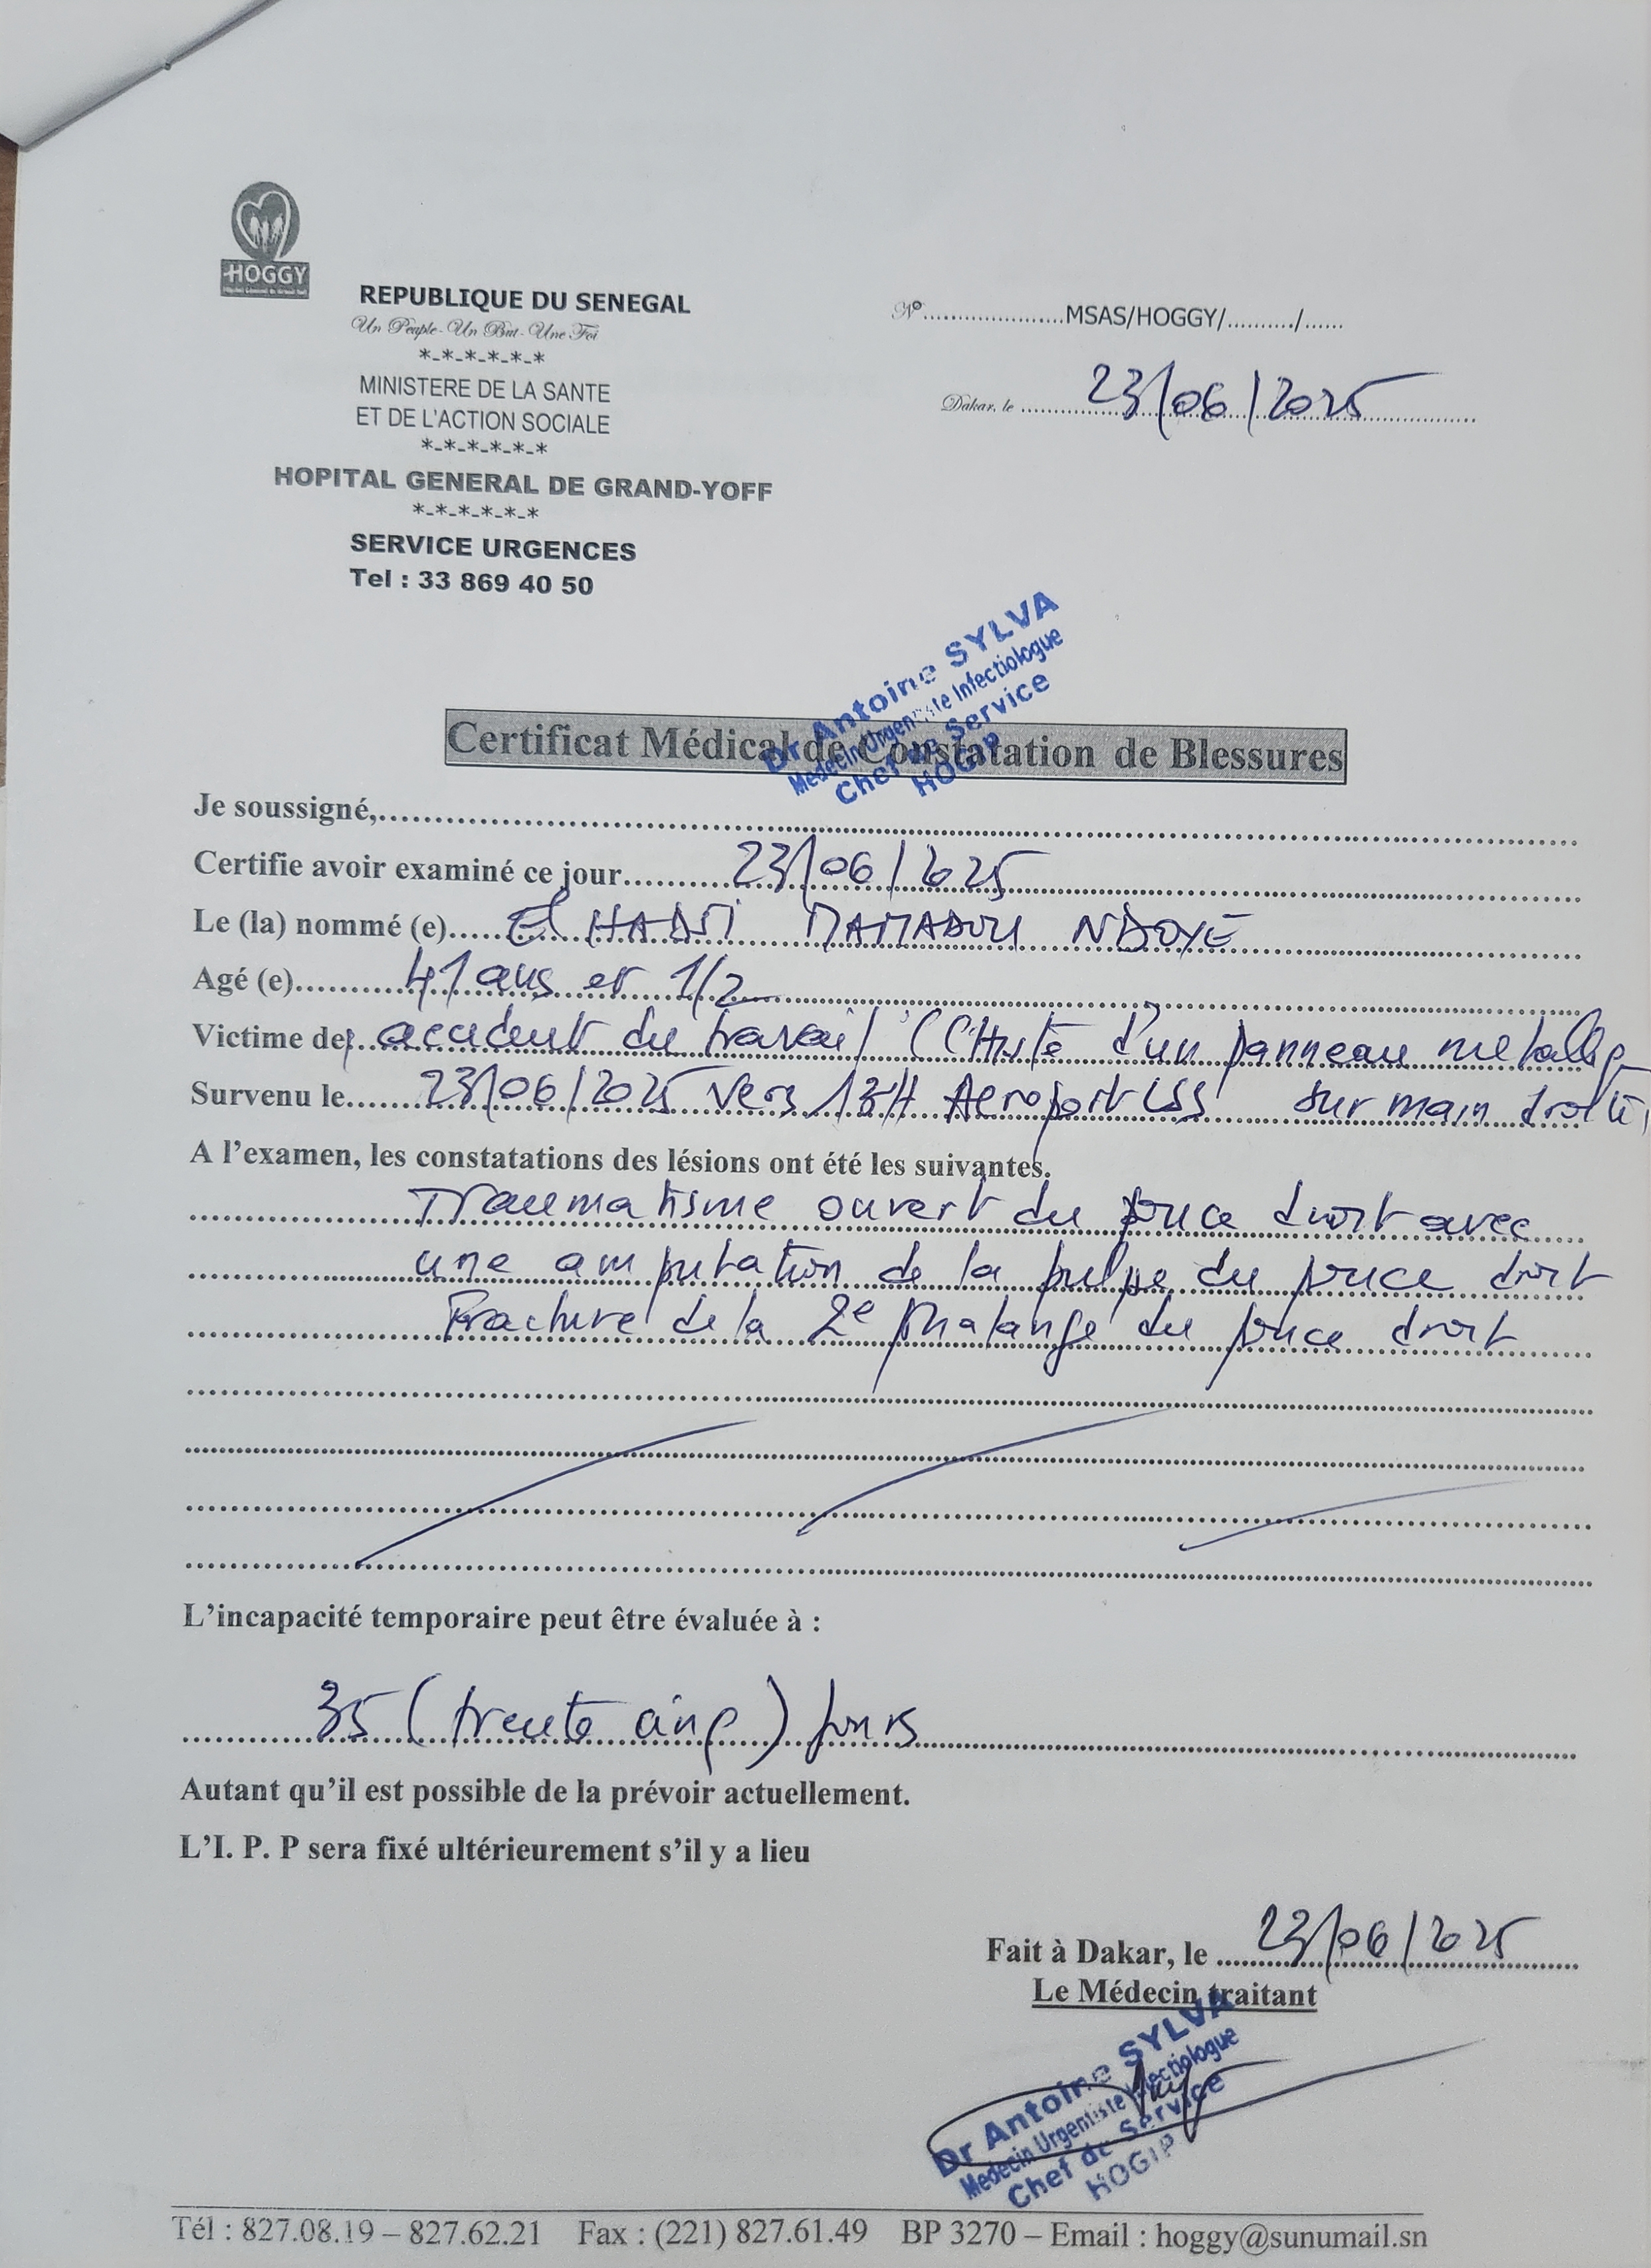 HOGGY
REPUBLIQUE DU SENEGAL
Un Peuple - Un But - Une Foi
*-*-*-*-*-*
MINISTERE DE LA SANTE
ET DE L'ACTION SOCIALE
*-*-*-*-*-*
HOPITAL GENERAL DE GRAND-YOFF
*-*-*-*-*-*
SERVICE URGENCES
Tel : 33 869 40 50
N°......................MSAS/HOGGY/........../......
Dakar, le 23/06/2025
Dr Antoine SYLVA
Médecin Urgentiste Infectiologue
Chef de Service
HOGIP
Certificat Médical de Constatation de Blessures
Je soussigné,
Certifie avoir examiné ce jour 23/06/2025
Le (la) nommé (e) El HADJI MAMADOU NDOYE
Agé (e) 41 ans et 1/2
Victime de accident du travail (CHute d'un panneau metallique
Survenu le 23/06/2025 vers 13H Aeroport LSS sur main droite)
A l'examen, les constatations des lésions ont été les suivantes.
Traumatisme ouvert du pouce droit avec
une amputation de la pulpe du pouce droit
Fracture de la 2e phalange du pouce droit
L'incapacité temporaire peut être évaluée à :
35 (trente cinq) jours
Autant qu'il est possible de la prévoir actuellement.
L'I. P. P sera fixé ultérieurement s'il y a lieu
Fait à Dakar, le 23/06/2025
Le Médecin traitant
Dr Antoine SYLVA
Médecin Urgentiste Infectiologue
Chef de Service
HOGIP
Tél : 827.08.19 – 827.62.21 Fax : (221) 827.61.49 BP 3270 – Email : hoggy@sunumail.sn